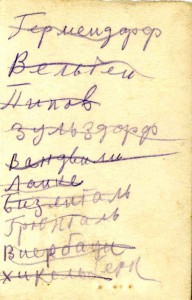 Гермендорф
Вельтен
Типов
Зульздорф
Вандвили
Ланке
Бизенталь
Грюнталь
Виербаум